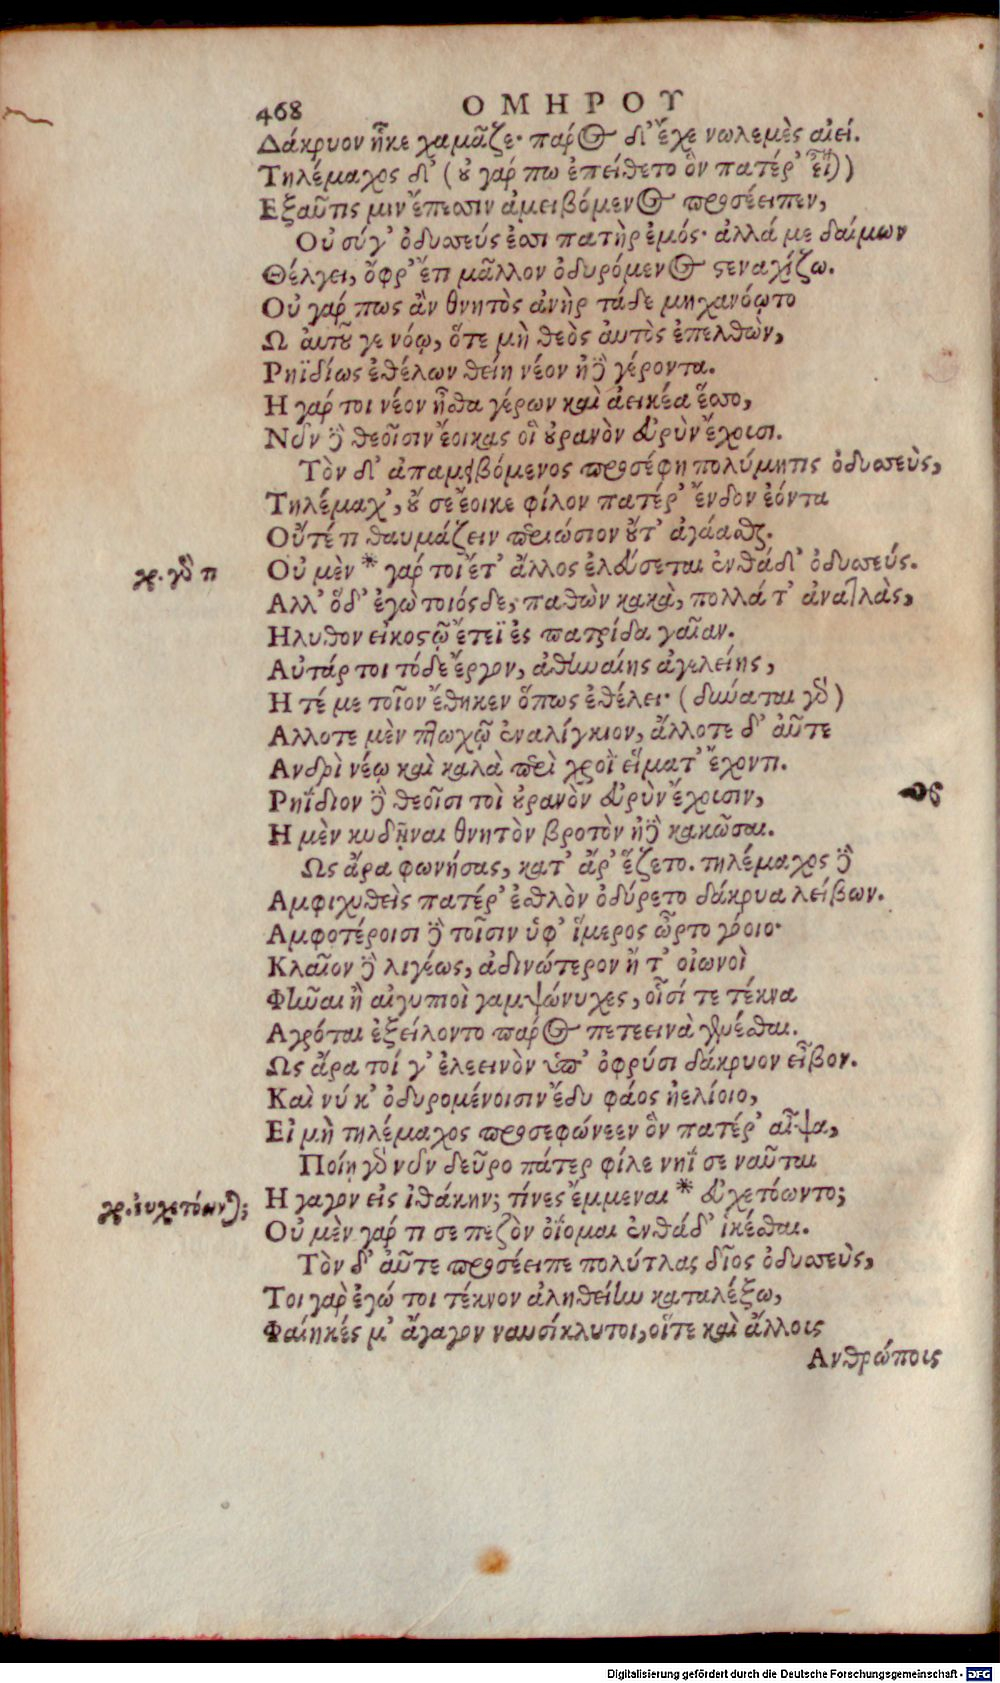 468
ΟΜΗΡΟΥ
Δάκρυον ἧκε χαμᾶζε· πάρος δ' ἔχε νωλεμὲς αἰεί.
Τηλέμαχος δ' (οὐ γάρ πω ἐπείθετο ὃν πατέρ' εἶναι)
Εξαῦτις μιν ἔπεσσιν ἀμειβόμενος προσέειπεν,
Οὐ σύγ' ὀδυσσεύς ἐσσι πατὴρ ἐμός· ἀλλά με δαίμων
Θέλγει, ὄφρ' ἔτι μᾶλλον ὀδυρόμενος στεναχίζω.
Οὐ γάρ πως ἂν θνητὸς ἀνὴρ τάδε μηχανόῳτο
Ω αὐτοῦ γε νόῳ, ὅτε μὴ θεὸς αὐτὸς ἐπελθὼν,
Ρηϊδίως ἐθέλων θείη νέον ἠδὲ γέροντα.
Η γάρ τοι νέον ἦσθα γέρων καὶ ἀεικέα ἕσσο,
Νῦν δὲ θεοῖσιν ἔοικας οἳ οὐρανὸν εὐρὺν ἔχουσι.
Τὸν δ' ἀπαμειβόμενος προσέφη πολύμητις ὀδυσσεὺς,
Τηλέμαχ', οὔ σε ἔοικε φίλον πατέρ' ἔνδον ἐόντα
Οὔτέ τι θαυμάζειν περιώσιον οὔτ' ἀγάασθαι.
Οὐ μὲν * γάρ τοι ἔτ' ἄλλος ἐλεύσεται ἐνθάδ' ὀδυσσεύς.
γρ. γάρ τι
Αλλ' ὅδ' ἐγὼ τοιόσδε, παθὼν κακὰ, πολλά τ' ἀνατλὰς,
Ηλυθον εἰκοστῷ ἔτεϊ ἐς πατρίδα γαῖαν.
Αὐτάρ τοι τόδε ἔργον, ἀθηναίης ἀγελείης,
Η τέ με τοῖον ἔθηκεν ὅπως ἐθέλει· (δύναται γάρ)
Αλλοτε μὲν πτωχῷ ἐναλίγκιον, ἄλλοτε δ' αὖτε
Ανδρὶ νέῳ καὶ καλὰ περὶ χροῒ εἵματ' ἔχοντι.
Ρηΐδιον δὲ θεοῖσι τοὶ οὐρανὸν εὐρὺν ἔχουσιν,
Η μὲν κυδῆναι θνητὸν βροτὸν ἠδὲ κακῶσαι.
Ως ἄρα φωνήσας, κατ' ἄρ' ἕζετο. τηλέμαχος δὲ
Αμφιχυθεὶς πατέρ' ἐσθλὸν ὀδύρετο δάκρυα λείβων.
Αμφοτέροισι δὲ τοῖσιν ὑφ' ἵμερος ὦρτο γόοιο·
Κλαῖον δὲ λιγέως, ἀδινώτερον ἤ τ' οἰωνοὶ
Φῆναι ἢ αἰγυπιοὶ γαμψώνυχες, οἷσί τε τέκνα
Αγρόται ἐξείλοντο πάρος πετεεινὰ γενέσθαι.
Ως ἄρα τοί γ' ἐλεεινὸν ὑπ' ὀφρύσι δάκρυον εἶβον.
Καὶ νύ κ' ὀδυρομένοισιν ἔδυ φάος ἠελίοιο,
Εἰ μὴ τηλέμαχος προσεφώνεεν ὃν πατέρ' αἶψα,
Ποίῃ γὰρ νῦν δεῦρο πάτερ φίλε νηΐ σε ναῦται
Ηγαγον εἰς ἰθάκην; τίνες ἔμμεναι * εὐχετόωντο;
γρ. εὐχετόωνται;
Οὐ μὲν γάρ τι σε πεζὸν ὀΐομαι ἐνθάδ' ἱκέσθαι.
Τὸν δ' αὖτε προσέειπε πολύτλας δῖος ὀδυσσεὺς,
Τοι γὰρ ἐγώ τοι τέκνον ἀληθείην καταλέξω,
Φαίηκές μ' ἄγαγον ναυσίκλυτοι, οἵτε καὶ ἄλλους
Ανθρώποις
Digitalisierung gefördert durch die Deutsche Forschungsgemeinschaft - DFG